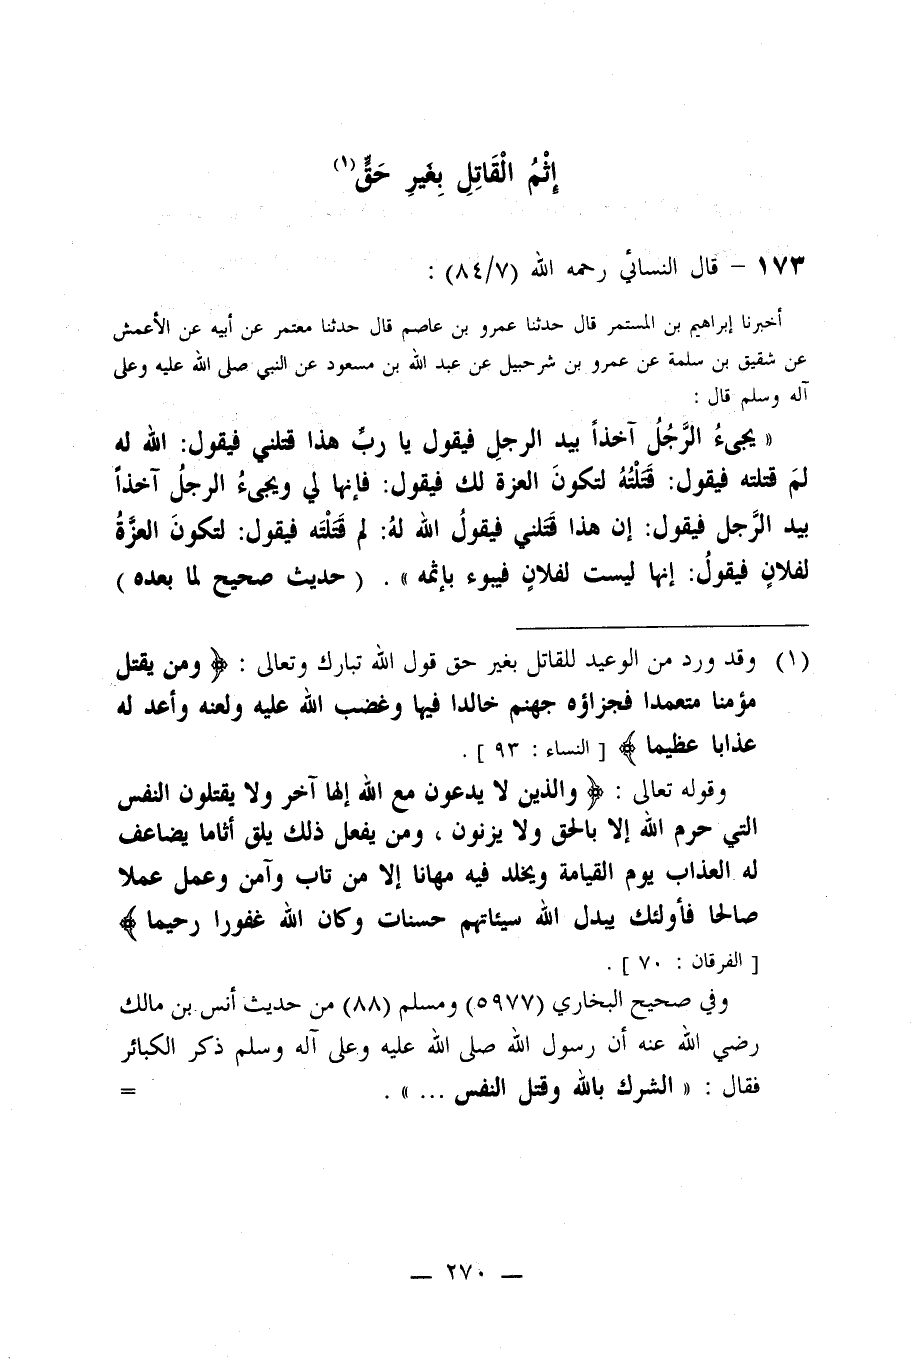 إِثْمُ الْقَاتِلِ بِغَيرِ حَقٍّ(١)
١٧٣ – قال النسائي رحمه الله (٨٤/٧) :
أخبرنا إبراهيم بن المستمر قال حدثنا عمرو بن عاصم قال حدثنا معتمر عن أبيه عن الأعمش
عن شقيق بن سلمة عن عمرو بن شرحبيل عن عبد الله بن مسعود عن النبي صلى الله عليه وعلى
آله وسلم قال :
« يجىءُ الرَّجُلُ آخذاً بيد الرجلِ فيقول يا ربِّ هذا قتلني فيقول: الله له
لمَ قتلته فيقول: قَتَلْتُهُ لتكونَ العزة لك فيقول: فإنها لي ويجىءُ الرجلُ آخذاً
بيد الرَّجل فيقول: إن هذا قَتَلني فيقولُ الله لهُ: لم قَتَلْتَه فيقول: لتكونَ العزَّةُ
لفلانٍ فيقولُ: إنها ليست لفلانٍ فيبوء بإثمه » . ( حديث صحيح لما بعده )
(١) وقد ورد من الوعيد للقاتل بغير حق قول الله تبارك وتعالى : ﴿ ومن يقتل
مؤمنا متعمدا فجزاؤه جهنم خالدا فيها وغضب الله عليه ولعنه وأعد له
عذابا عظيما ﴾ [ النساء : ٩٣ ] .
وقوله تعالى : ﴿ والذين لا يدعون مع الله إلها آخر ولا يقتلون النفس
التي حرم الله إلا بالحق ولا يزنون ، ومن يفعل ذلك يلق أثاما يضاعف
له العذاب يوم القيامة ويخلد فيه مهانا إلا من تاب وآمن وعمل عملا
صالحا فأولئك يبدل الله سيئاتهم حسنات وكان الله غفورا رحيما ﴾
[ الفرقان : ٧٠ ] .
وفي صحيح البخاري (٥٩٧٧) ومسلم (٨٨) من حديث أنس بن مالك
رضي الله عنه أن رسول الله صلى الله عليه وعلى آله وسلم ذكر الكبائر
فقال : « الشرك بالله وقتل النفس ... » . =
— ٢٧٠ —